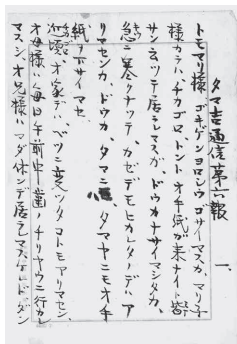 タマ吉通信第六報
一、
トモマリ様、ゴキゲンヨロシウゴザイマスカ、マリ子
様カラハ、チカゴロ、トントオ手紙が来ナイト皆
サン云ッテ居ラレマスガ、ドウカナサイマシタカ、
急ニ寒クナッテ、カゼデモヒカレタノデハア
リマセンカ、ドウカ、タマニハ、タマヤニモオ手
紙ヲ下サイマセ、
近頃オ家デハ、ベツニ変ッタコトモアリマセン、
オ母様ハ毎日午前中ニ歯ノチリヤウニ行カレ
マスシ、オ兄様ハマダ休ンデ居ラレマスケレドダン